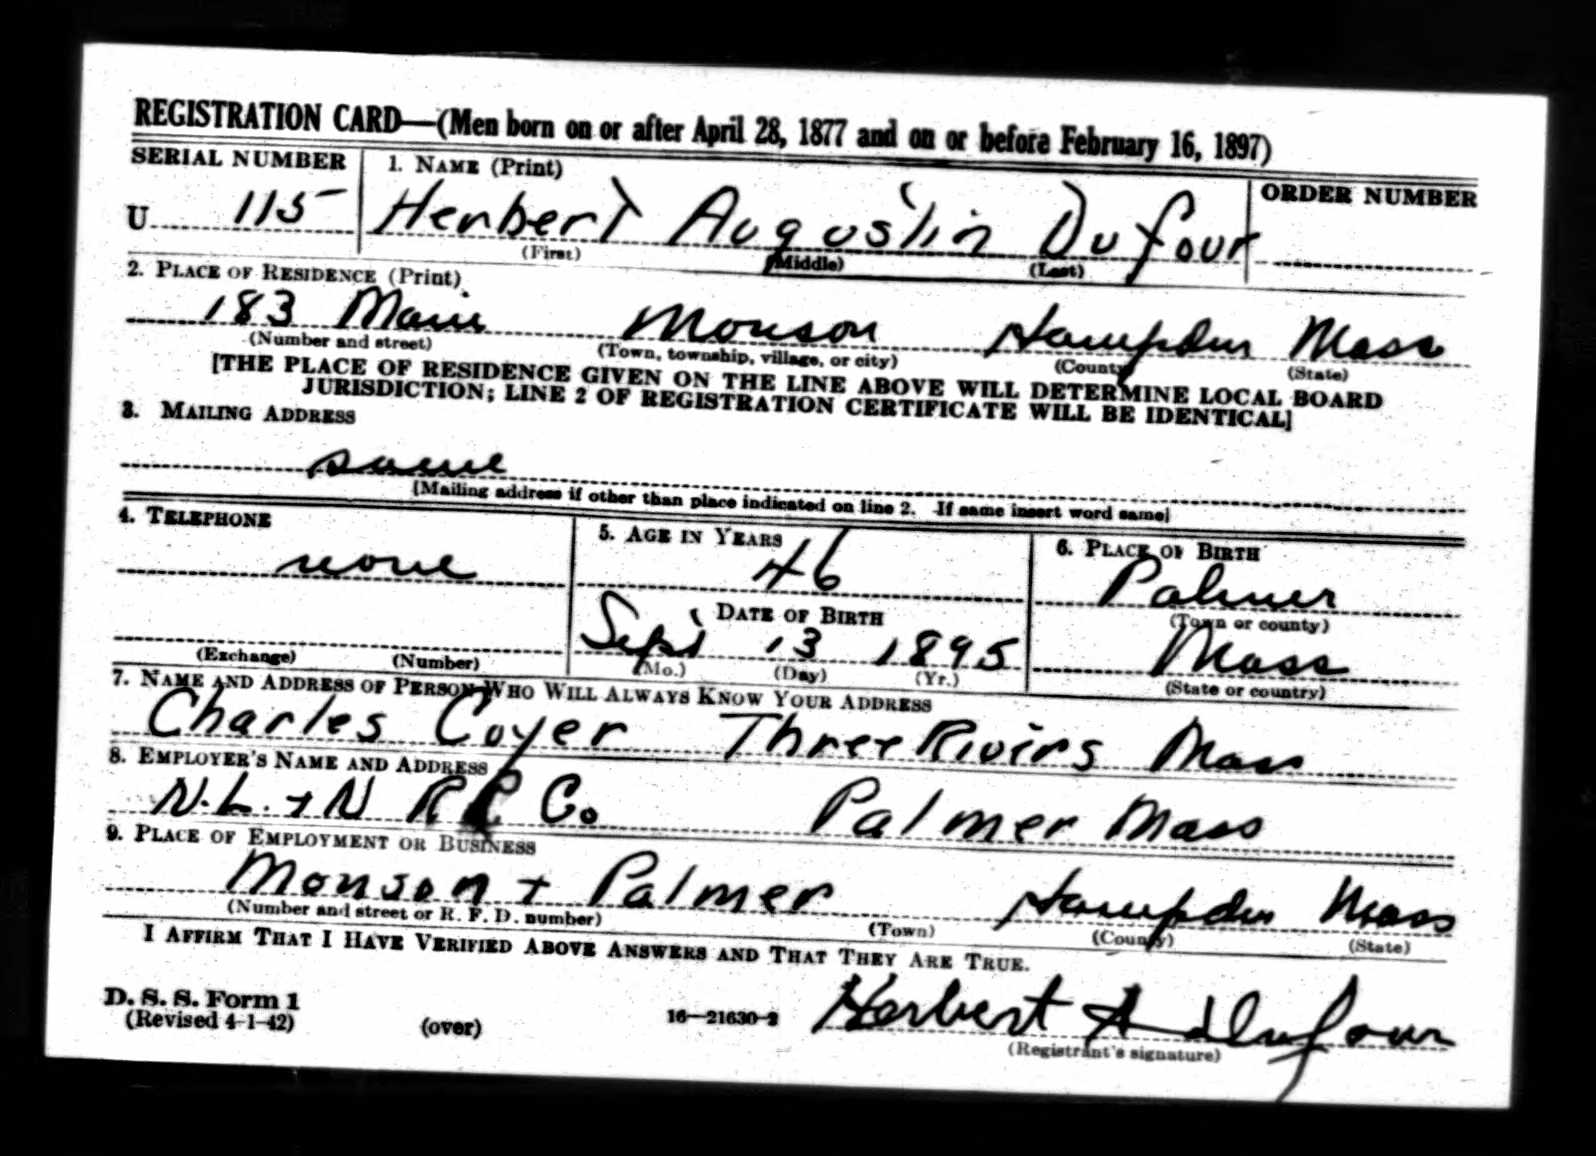 REGISTRATION CARD—(Men born on or after April 28, 1877 and on or before February 16, 1897)
SERIAL NUMBER 1. NAME (Print) ORDER NUMBER
U 115 Herbert Augustin Dufour
(First) (Middle) (Last)
2. PLACE OF RESIDENCE (Print)
183 Main Monson Hampden Mass
(Number and street) (Town, township, village, or city) (County) (State)
[THE PLACE OF RESIDENCE GIVEN ON THE LINE ABOVE WILL DETERMINE LOCAL BOARD
JURISDICTION; LINE 2 OF REGISTRATION CERTIFICATE WILL BE IDENTICAL]
3. MAILING ADDRESS
same
[Mailing address if other than place indicated on line 2. If same insert word same]
4. TELEPHONE 5. AGE IN YEARS 6. PLACE OF BIRTH
none 46 Palmer
DATE OF BIRTH (Town or county)
Sept 13 1895 Mass
(Exchange) (Number) (Mo.) (Day) (Yr.) (State or country)
7. NAME AND ADDRESS OF PERSON WHO WILL ALWAYS KNOW YOUR ADDRESS
Charles Coyer Three Rivirs Mass
8. EMPLOYER'S NAME AND ADDRESS
N.L. + N RR Co Palmer Mass
9. PLACE OF EMPLOYMENT OR BUSINESS
Monson + Palmer Hampden Mass
(Number and street or R. F. D. number) (Town) (County) (State)
I AFFIRM THAT I HAVE VERIFIED ABOVE ANSWERS AND THAT THEY ARE TRUE.
D. S. S. Form 1
(Revised 4-1-42) (over) 16—21630-2 Herbert A Dufour
(Registrant's signature)